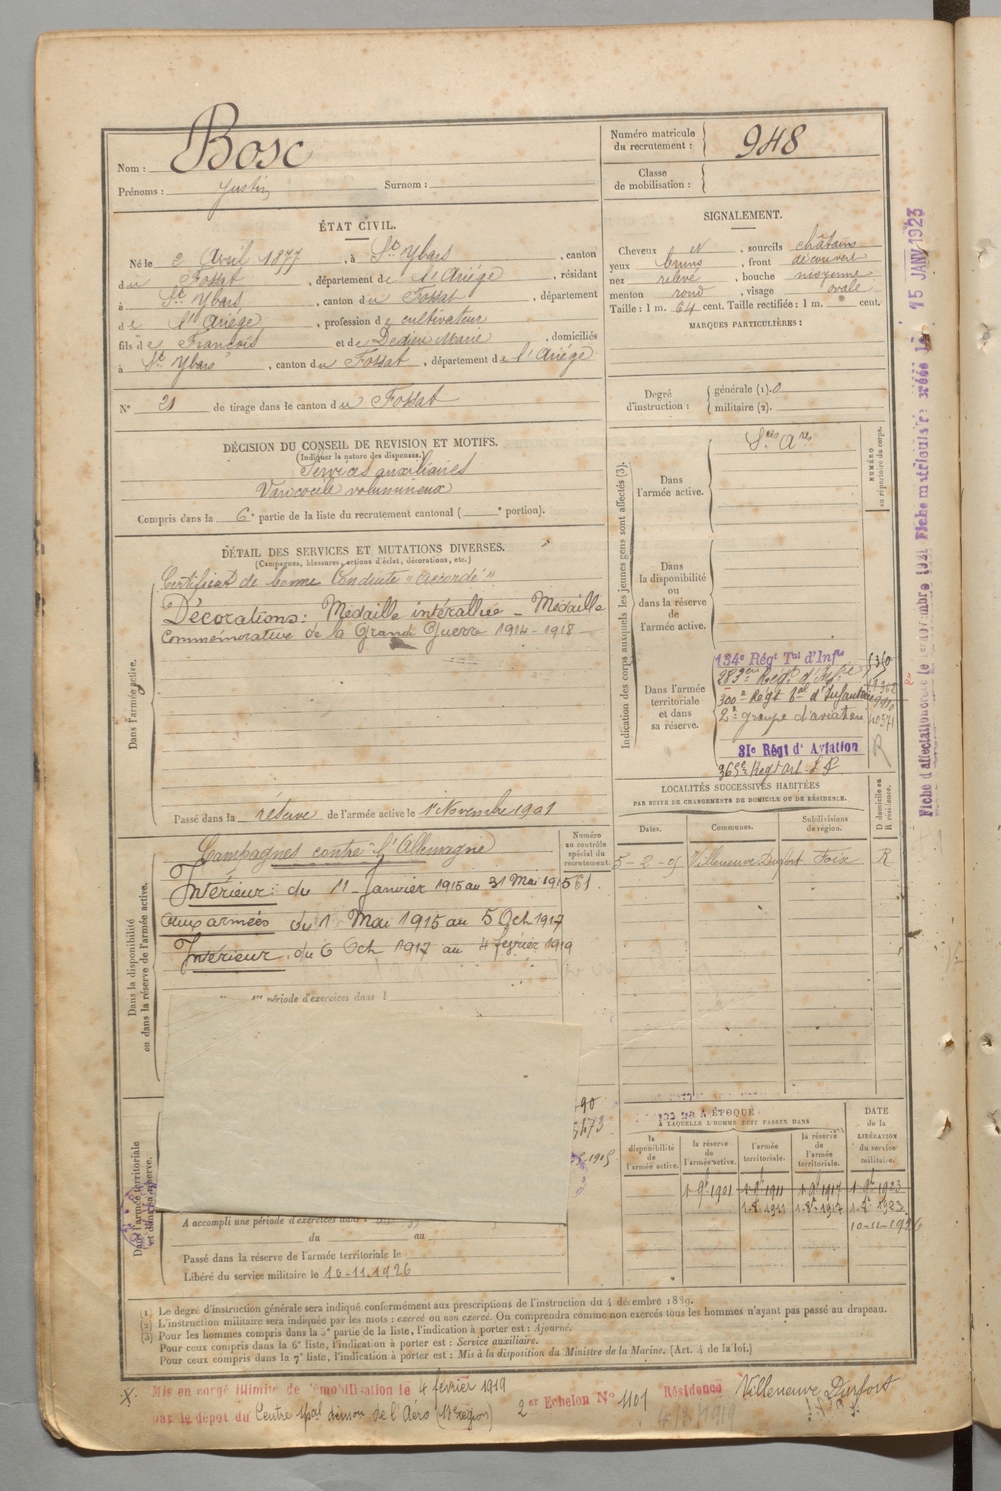 Nom : Bosc
Prénoms : Justin Surnom :
Numéro matricule du recrutement : 948
Classe de mobilisation :
ÉTAT CIVIL.
Né le 2 Avril 1877, à St Ybars, canton
du Fossat, département de l'Ariège, résidant
à St Ybars, canton du Fossat, département
de l'Ariège, profession de cultivateur
fils de François et de Dedieu Marie, domiciliés
à St Ybars, canton du Fossat, département de l'Ariége
N° 21 de tirage dans le canton du Fossat
SIGNALEMENT.
Cheveux et, sourcils châtains
yeux bruns, front découvert
nez relevé, bouche moyenne
menton rond, visage ovale
Taille : 1 m. 64 cent. Taille rectifiée : 1 m. cent.
MARQUES PARTICULIÈRES :
Degré d'instruction : générale (1). 0
militaire (2).
DÉCISION DU CONSEIL DE REVISION ET MOTIFS.
(Indiquer la nature des dispenses.)
Services auxiliaires
Varicocèle volumineux
Compris dans la 6e partie de la liste du recrutement cantonal ( e portion).
DÉTAIL DES SERVICES ET MUTATIONS DIVERSES.
(Campagnes, blessures, actions d'éclat, décorations, etc.)
Certificat de bonne Conduite "Accordé"
Décorations : Médaille interalliée - Médaille
Commémorative de la Grande Guerre 1914-1918
Dans l'armée active.
Passé dans la réserve de l'armée active le 1 Novembre 1901
Indication des corps auxquels les jeunes gens sont affectés (3).
NUMÉRO au répertoire du corps.
Dans l'armée active.
Sces Are
Dans la disponibilité ou dans la réserve de l'armée active.
Dans l'armée territoriale et dans sa réserve.
134e Régt Tal d'Infie
283me Régt d'Infie
300e Régt tal d'Infanterie
2e groupe d'aviation
31e Régt d'Aviation
LOCALITÉS SUCCESSIVES HABITÉES
PAR SUITE DE CHANGEMENTS DE DOMICILE OU DE RÉSIDENCE.
Dates. Communes. Subdivisions de région. D domicile ou R résidence.
5-2-05 Villeneuve Durfort Foix R
Dans la disponibilité ou dans la réserve de l'armée active.
Numéro au contrôle spécial du recrutement.
561.
Campagnes contre l'Allemagne
Intérieur : du 11 Janvier 1915 au 31 Mai 1915
aux armées du 1 Mai 1915 au 5 Oct 1917
Intérieur : du 6 Oct 1917 au 4 février 1919
période d'exercices dans l
Dans l'armée territoriale et dans sa réserve.
A accompli une période d'exercices dans
du au
Passé dans la réserve de l'armée territoriale le
Libéré du service militaire le 10-11-1926
ÉPOQUE
A LAQUELLE L'HOMME DOIT PASSER DANS
la disponibilité de l'armée active. la réserve de l'armée active. l'armée territoriale. la réserve de l'armée territoriale. DATE de la LIBÉRATION du service militaire.
1 9b 1901 1 9b 1911 1 9b 1917 1 9b 1923
10-11-1926
(1) Le degré d'instruction générale sera indiqué conformément aux prescriptions de l'instruction du 4 décembre 1889.
(2) L'instruction militaire sera indiquée par les mots : exercé ou non exercé. On comprendra comme non exercés tous les hommes n'ayant pas passé au drapeau.
(3) Pour les hommes compris dans la 5e partie de la liste, l'indication à porter est : Ajourné.
Pour ceux compris dans la 6e liste, l'indication à porter est : Service auxiliaire.
Pour ceux compris dans la 7e liste, l'indication à porter est : Mis à la disposition du Ministre de la Marine. (Art. 4 de la loi.)
Mis en congé illimité de démobilisation le 4 février 1919
par le dépôt du Centre
2er Echelon N° 1101 Résidence Villeneuve Durfort
15 JANV 1923